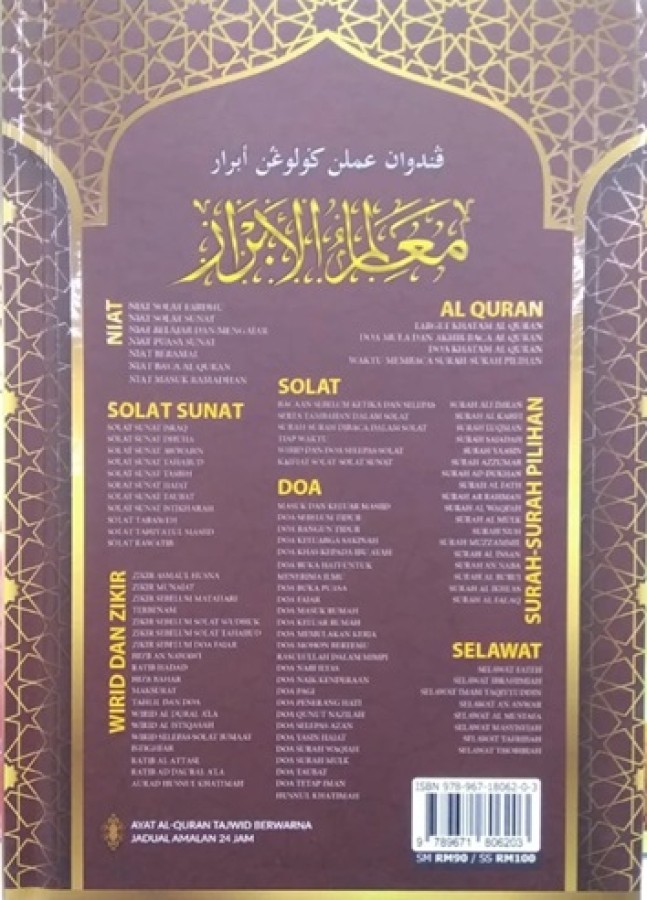 ڤندوان عملن ڬولوڠن أبرار
معالم الأبرار
NIAT
NIAT SOLAT FARDHU
NIAT SOLAT SUNAT
NIAT BELAJAR DAN MENGAJAR
NIAT PUASA SUNAT
NIAT BERAMAL
NIAT BACA AL QURAN
NIAT MASUK RAMADHAN
AL QURAN
TARGET KHATAM AL QURAN
DOA MULA DAN AKHIR BACA AL QURAN
DOA KHATAM AL QURAN
WAKTU MEMBACA SURAH-SURAH PILIHAN
SOLAT SUNAT
SOLAT SUNAT ISRAQ
SOLAT SUNAT DHUHA
SOLAT SUNAT AWWABIN
SOLAT SUNAT TAHAJJUD
SOLAT SUNAT TASBIH
SOLAT SUNAT HAJAT
SOLAT SUNAT TAUBAT
SOLAT SUNAT ISTIKHARAH
SOLAT TARAWEH
SOLAT TAHIYATUL MASJID
SOLAT RAWATIB
SOLAT
BACAAN SEBELUM KETIKA DAN SELEPAS
SERTA TAMBAHAN DALAM SOLAT
SURAH-SURAH DIBACA DALAM SOLAT
TIAP WAKTU
WIRID DAN DOA SELEPAS SOLAT
KAIFIAT SOLAT-SOLAT SUNAT
DOA
MASUK DAN KELUAR MASJID
DOA SEBELUM TIDUR
DOA BANGUN TIDUR
DOA KELUARGA SAKINAH
DOA KHAS KEPADA IBU AYAH
DOA BUKA HATI UNTUK
MENERIMA ILMU
DOA BUKA PUASA
DOA FAJAR
DOA MASUK RUMAH
DOA KELUAR RUMAH
DOA MEMULAKAN KERJA
DOA MOHON BERTEMU
RASULULLAH DALAM MIMPI
DOA NABI ILYAS
DOA NAIK KENDERAAN
DOA PAGI
DOA PENERANG HATI
DOA QUNUT NAZILAH
DOA SELEPAS AZAN
DOA YASIN HAJAT
DOA SURAH WAQIAH
DOA SURAH MULK
DOA TAUBAT
DOA TETAP IMAN
HUSNUL KHATIMAH
SURAH-SURAH PILIHAN
SURAH ALI IMRAN
SURAH AL KAHFI
SURAH LUQMAN
SURAH SAJADAH
SURAH YAASIN
SURAH AZZUMAR
SURAH AD-DUKHAN
SURAH AL FATH
SURAH AR RAHMAN
SURAH AL WAQIAH
SURAH AL MULK
SURAH NUH
SURAH MUZZAMMIL
SURAH AL INSAN
SURAH AN NABA
SURAH AL BURUJ
SURAH AL IKHLAS
SURAH AL FALAQ
WIRID DAN ZIKIR
ZIKIR ASMAUL HUSNA
ZIKIR MUNAJAT
ZIKIR SEBELUM MATAHARI
TERBENAM
ZIKIR SEBELUM SOLAT WUDHUK
ZIKIR SEBELUM SOLAT TAHAJJUD
ZIKIR SEBELUM DOA FAJAR
HIZIB AN NAWAWI
RATIB HADAD
HIZIB BAHAR
MAKSURAT
TAHLIL DAN DOA
WIRID AL DURAL A'LA
WIRID AL ISTIQASAH
WIRID SELEPAS SOLAT JUMAAT
ISTIGHFAR
RATIB AL ATTAS
RATIB AD DAURAL A'LA
AURAD HUSNUL KHATIMAH
SELAWAT
SELAWAT FATEH
SELAWAT IBRAHIMIAH
SELAWAT IMAM TAQIYUDDIN
SELAWAT AN ANWAR
SELAWAT AL MUSTAFA
SELAWAT MASYISIYAH
SELAWAT TAFRIJIAH
SELAWAT THOBIBIAH
AYAT AL-QURAN TAJWID BERWARNA
JADUAL AMALAN 24 JAM
ISBN 978-967-18062-0-3
9 789671 806203
SM RM90 / SS RM100